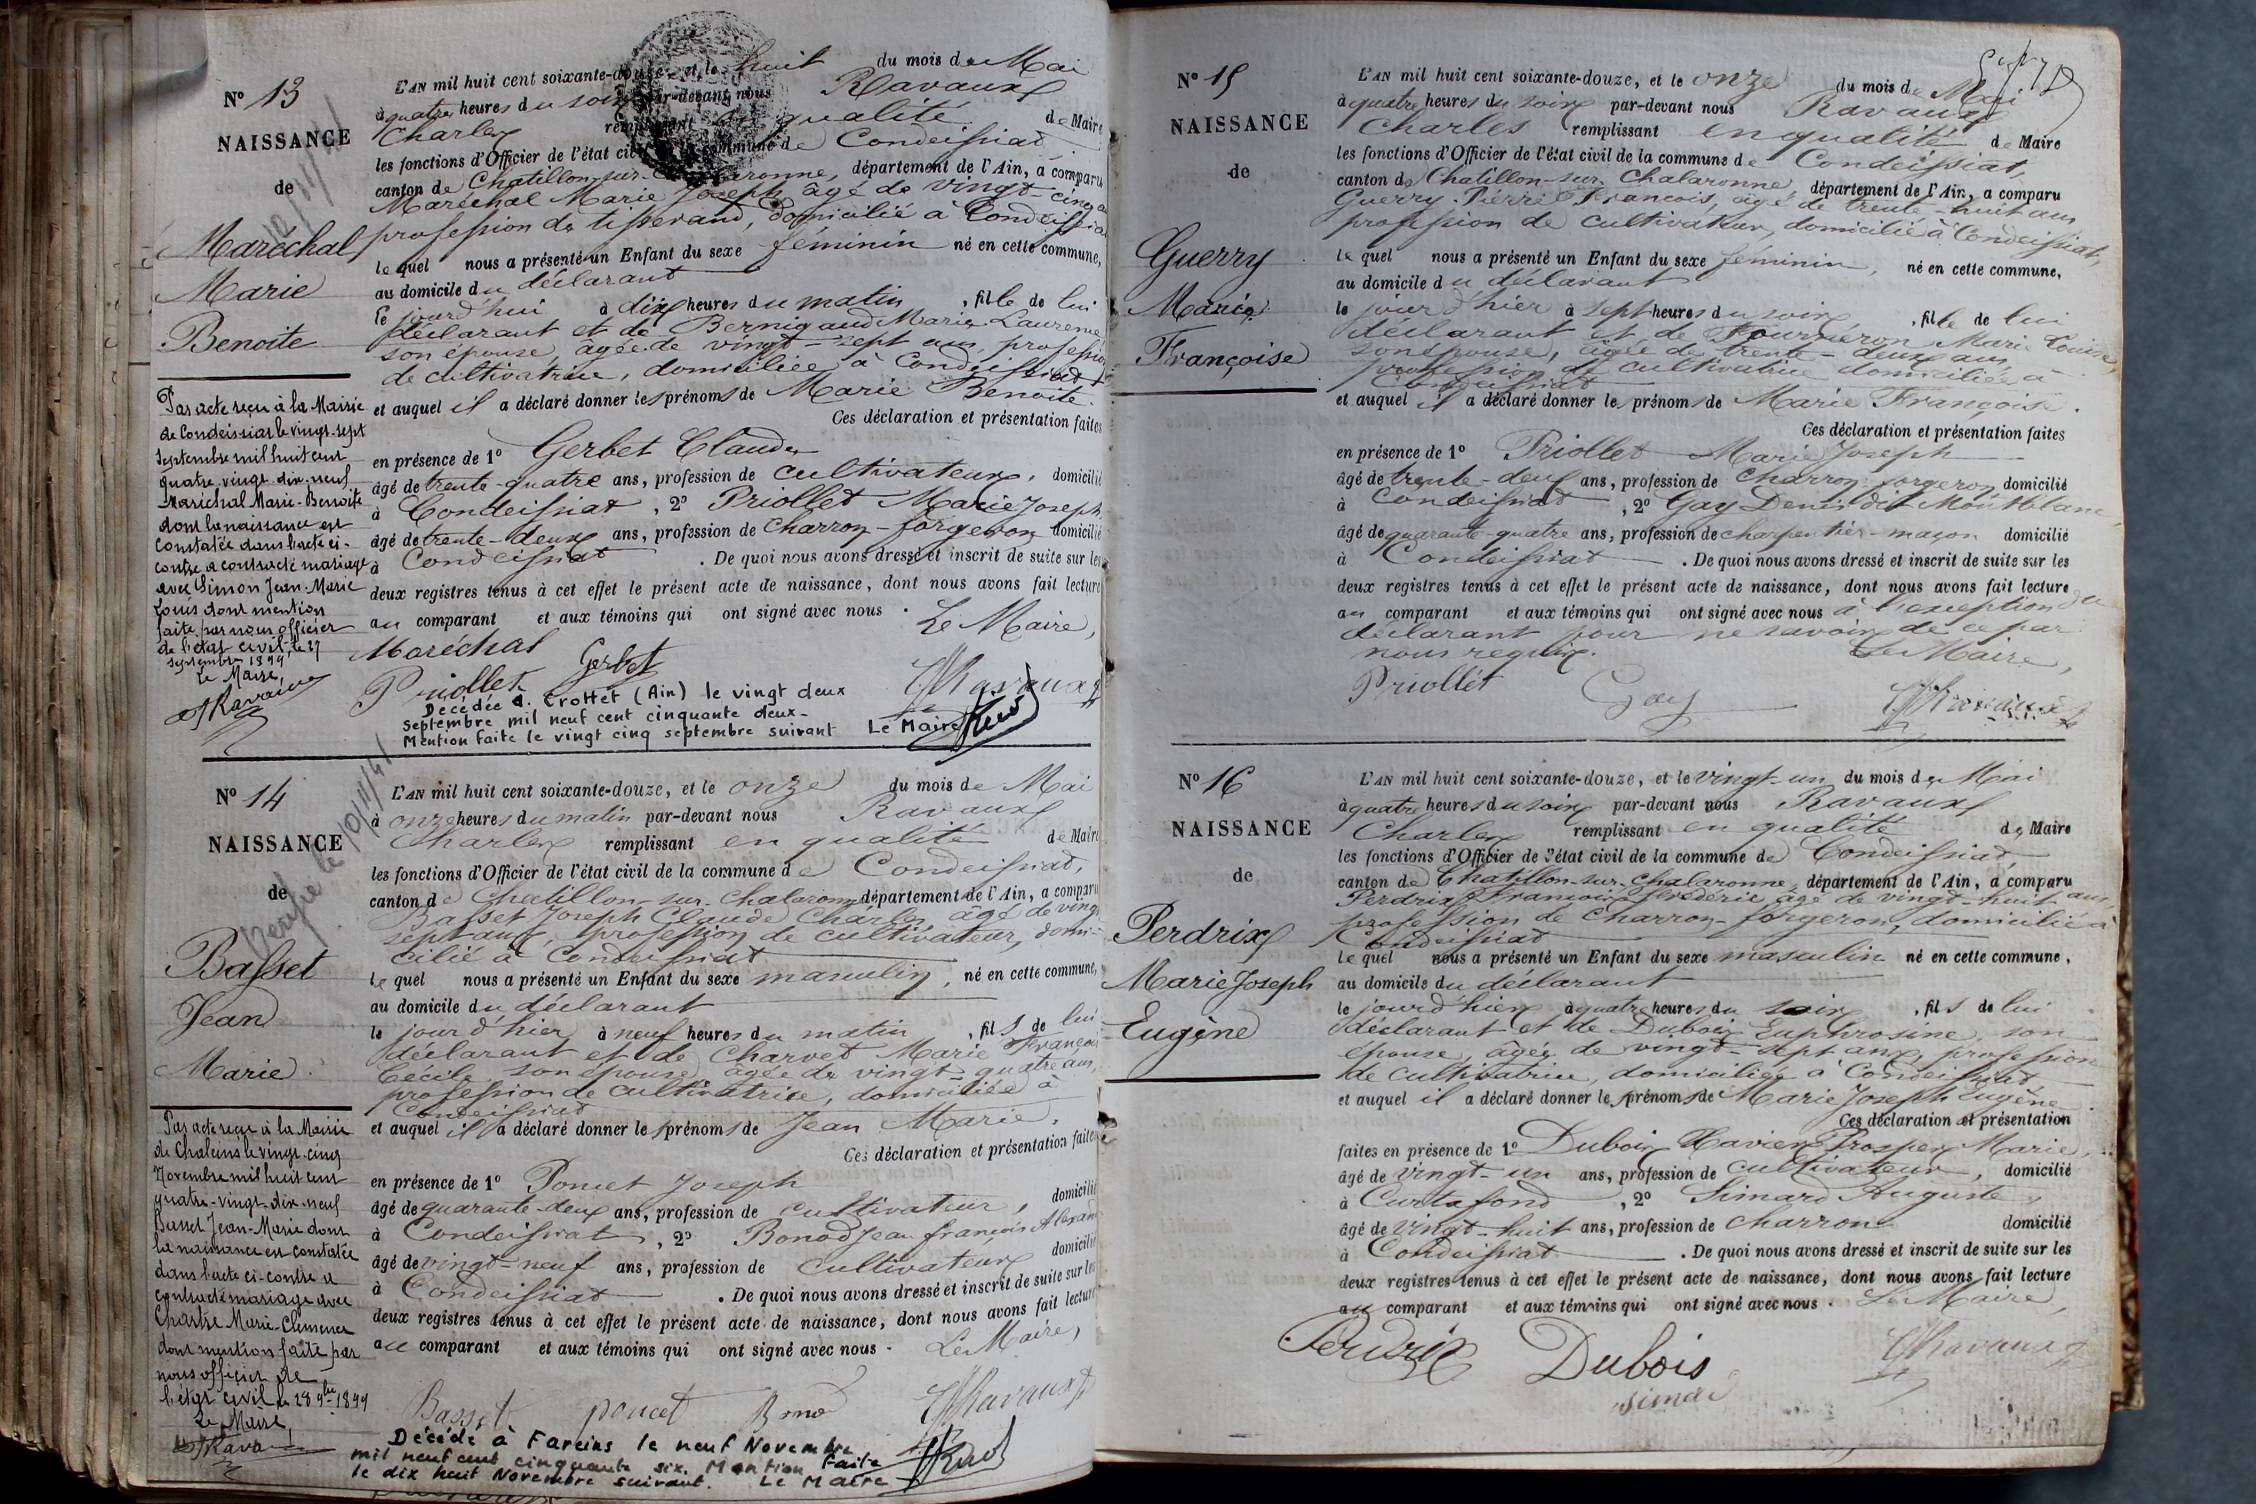 N° 13
NAISSANCE
de
Maréchal
Marie
Benoite
L'AN mil huit cent soixante-douze, et le huit du mois de Mai
à quatre heures du soir par-devant nous Ravaux
Charles remplissant en qualité de Maire
les fonctions d'Officier de l'état civil de la commune de Condeissiat
canton de Chatillon-sur-Chalaronne, département de l'Ain, a comparu
Maréchal Marie Joseph âgé de vingt-cinq
profession de tisserand, domicilié à Condeissiat
lequel nous a présenté un Enfant du sexe féminin né en cette commune,
au domicile du déclarant
le jourd'hui à dix heures du matin, fille de lui
déclarant et de Bernigaud Marie Laurence
son épouse, âgée de vingt-sept ans, profession
de cultivatrice, domiciliée à Condeissiat
et auquel il a déclaré donner les prénoms de Marie Benoite.
Ces déclaration et présentation faites
en présence de 1° Gerbet Claude
âgé de trente-quatre ans, profession de cultivateur, domicilié
à Condeissiat, 2° Priollet Marie Joseph
âgé de trente-deux ans, profession de charron-forgeron domicilié
à Condeissiat. De quoi nous avons dressé et inscrit de suite sur les
deux registres tenus à cet effet le présent acte de naissance, dont nous avons fait lecture
au comparant et aux témoins qui ont signé avec nous.
Le Maire,
Maréchal
Priollet Gerbet Ravaux
Décédée à Crottet (Ain) le vingt deux
septembre mil neuf cent cinquante deux-
Mention faite le vingt cinq septembre suivant Le Maire
Par acte reçu à la Mairie
de Condeissiat le vingt-sept
septembre mil huit cent
quatre vingt dix-neuf
Maréchal Marie-Benoite
dont la naissance est
constatée dans l'acte ci-
contre a contracté mariage
avec Simon Jean-Marie
Louis dont mention
faite par nous officier
de l'état civil, le 27
septembre 1899
Le Maire,
Ravaux
N° 14
NAISSANCE
de
Basset
Jean
Marie
L'AN mil huit cent soixante-douze, et le onze du mois de Mai
à onze heures du matin par-devant nous Ravaux
Charles remplissant en qualité de Maire
les fonctions d'Officier de l'état civil de la commune de Condeissiat,
canton de Chatillon-sur-Chalaronne département de l'Ain, a comparu
Basset Joseph Claude Charles âgé de vingt
sept ans, profession de cultivateur, domi-
cilié à Condeissiat
lequel nous a présenté un Enfant du sexe masculin, né en cette commune,
au domicile du déclarant
le jour d'hier à neuf heures du matin, fils de lui
déclarant et de Charvet Marie François
Cécile son épouse âgée de vingt-quatre ans,
profession de cultivatrice, domiciliée à
Condeissiat
et auquel il a déclaré donner les prénoms de Jean Marie.
Ces déclaration et présentation faites
en présence de 1° Poncet Joseph
âgé de quarante-deux ans, profession de cultivateur, domicilié
à Condeissiat, 2° Bonod Jean françois Alexan
âgé de vingt-neuf ans, profession de cultivateur domicilié
à Condeissiat. De quoi nous avons dressé et inscrit de suite sur les
deux registres tenus à cet effet le présent acte de naissance, dont nous avons fait lecture
au comparant et aux témoins qui ont signé avec nous.
Le Maire,
Basset poncet Bonod Ravaux
Décédé à Fareins le neuf Novembre
mil neuf cent cinquante six. Mention faite
le dix huit Novembre suivant. Le Maire
Par acte reçu à la Mairie
de Chaleins le vingt-cinq
Novembre mil huit cent
quatre-vingt-dix-neuf
Basset Jean-Marie dont
la naissance est constatée
dans l'acte ci-contre a
contracté mariage avec
Marie-Clémence
dont mention faite par
nous officier de
l'état civil, le 28 9bre 1899
Le Maire,
N° 15
NAISSANCE
de
Guerry
Marie
Françoise
L'AN mil huit cent soixante-douze, et le onze du mois de Mai
à quatre heures du soir par-devant nous Ravaux
Charles remplissant en qualité de Maire
les fonctions d'Officier de l'état civil de la commune de Condeissiat,
canton de Chatillon-sur-Chalaronne, département de l'Ain, a comparu
Guerry Pierre François, âgé de trente-huit ans
profession de cultivateur, domicilié à Condeissiat,
lequel nous a présenté un Enfant du sexe féminin, né en cette commune,
au domicile du déclarant
le jour d'hier à sept heures du soir, fille de lui
déclarant et de Fourneron Marie Louise,
son épouse, âgée de trente-deux ans,
profession de cultivatrice domiciliée à
Condeissiat
et auquel il a déclaré donner les prénoms de Marie Françoise.
Ces déclaration et présentation faites
en présence de 1° Priollet Marie Joseph
âgé de trente-deux ans, profession de Charron forgeron domicilié
à Condeissiat, 2° Gay Denis dit Montblanc,
âgé de quarante-quatre ans, profession de charpentier-maçon domicilié
à Condeissiat. De quoi nous avons dressé et inscrit de suite sur les
deux registres tenus à cet effet le présent acte de naissance, dont nous avons fait lecture
au comparant et aux témoins qui ont signé avec nous à l'exception du
déclarant pour ne savoir de ce par
nous requis. Le Maire,
Priollet Gay Ravaux
N° 16
NAISSANCE
de
Perdrix
Marie Joseph
Eugène
L'AN mil huit cent soixante-douze, et le vingt-un du mois de Mai
à quatre heures du soir par-devant nous Ravaux
Charles remplissant en qualité de Maire
les fonctions d'Officier de l'état civil de la commune de Condeissiat,
canton de Chatillon-sur-Chalaronne, département de l'Ain, a comparu
Perdrix François Frédéric âgé de vingt-huit ans
profession de charron-forgeron, domicilié à
Condeissiat
lequel nous a présenté un Enfant du sexe masculin né en cette commune,
au domicile du déclarant
le jour d'hier à quatre heures du soir, fils de lui
déclarant et de Dubois Euphrosine, son
épouse, âgée de vingt-sept ans, profession
de cultivatrice, domiciliée à Condeissiat
et auquel il a déclaré donner les prénoms de Marie Joseph Eugène
Ces déclaration et présentation
faites en présence de 1° Dubois Xavier Prosper Marie,
âgé de vingt-un ans, profession de cultivateur, domicilié
à Curtafond, 2° Simard Auguste,
âgé de vingt-huit ans, profession de charron domicilié
à Condeissiat. De quoi nous avons dressé et inscrit de suite sur les
deux registres tenus à cet effet le présent acte de naissance, dont nous avons fait lecture
au comparant et aux témoins qui ont signé avec nous. Le Maire,
Perdrix Dubois Ravaux
Simar